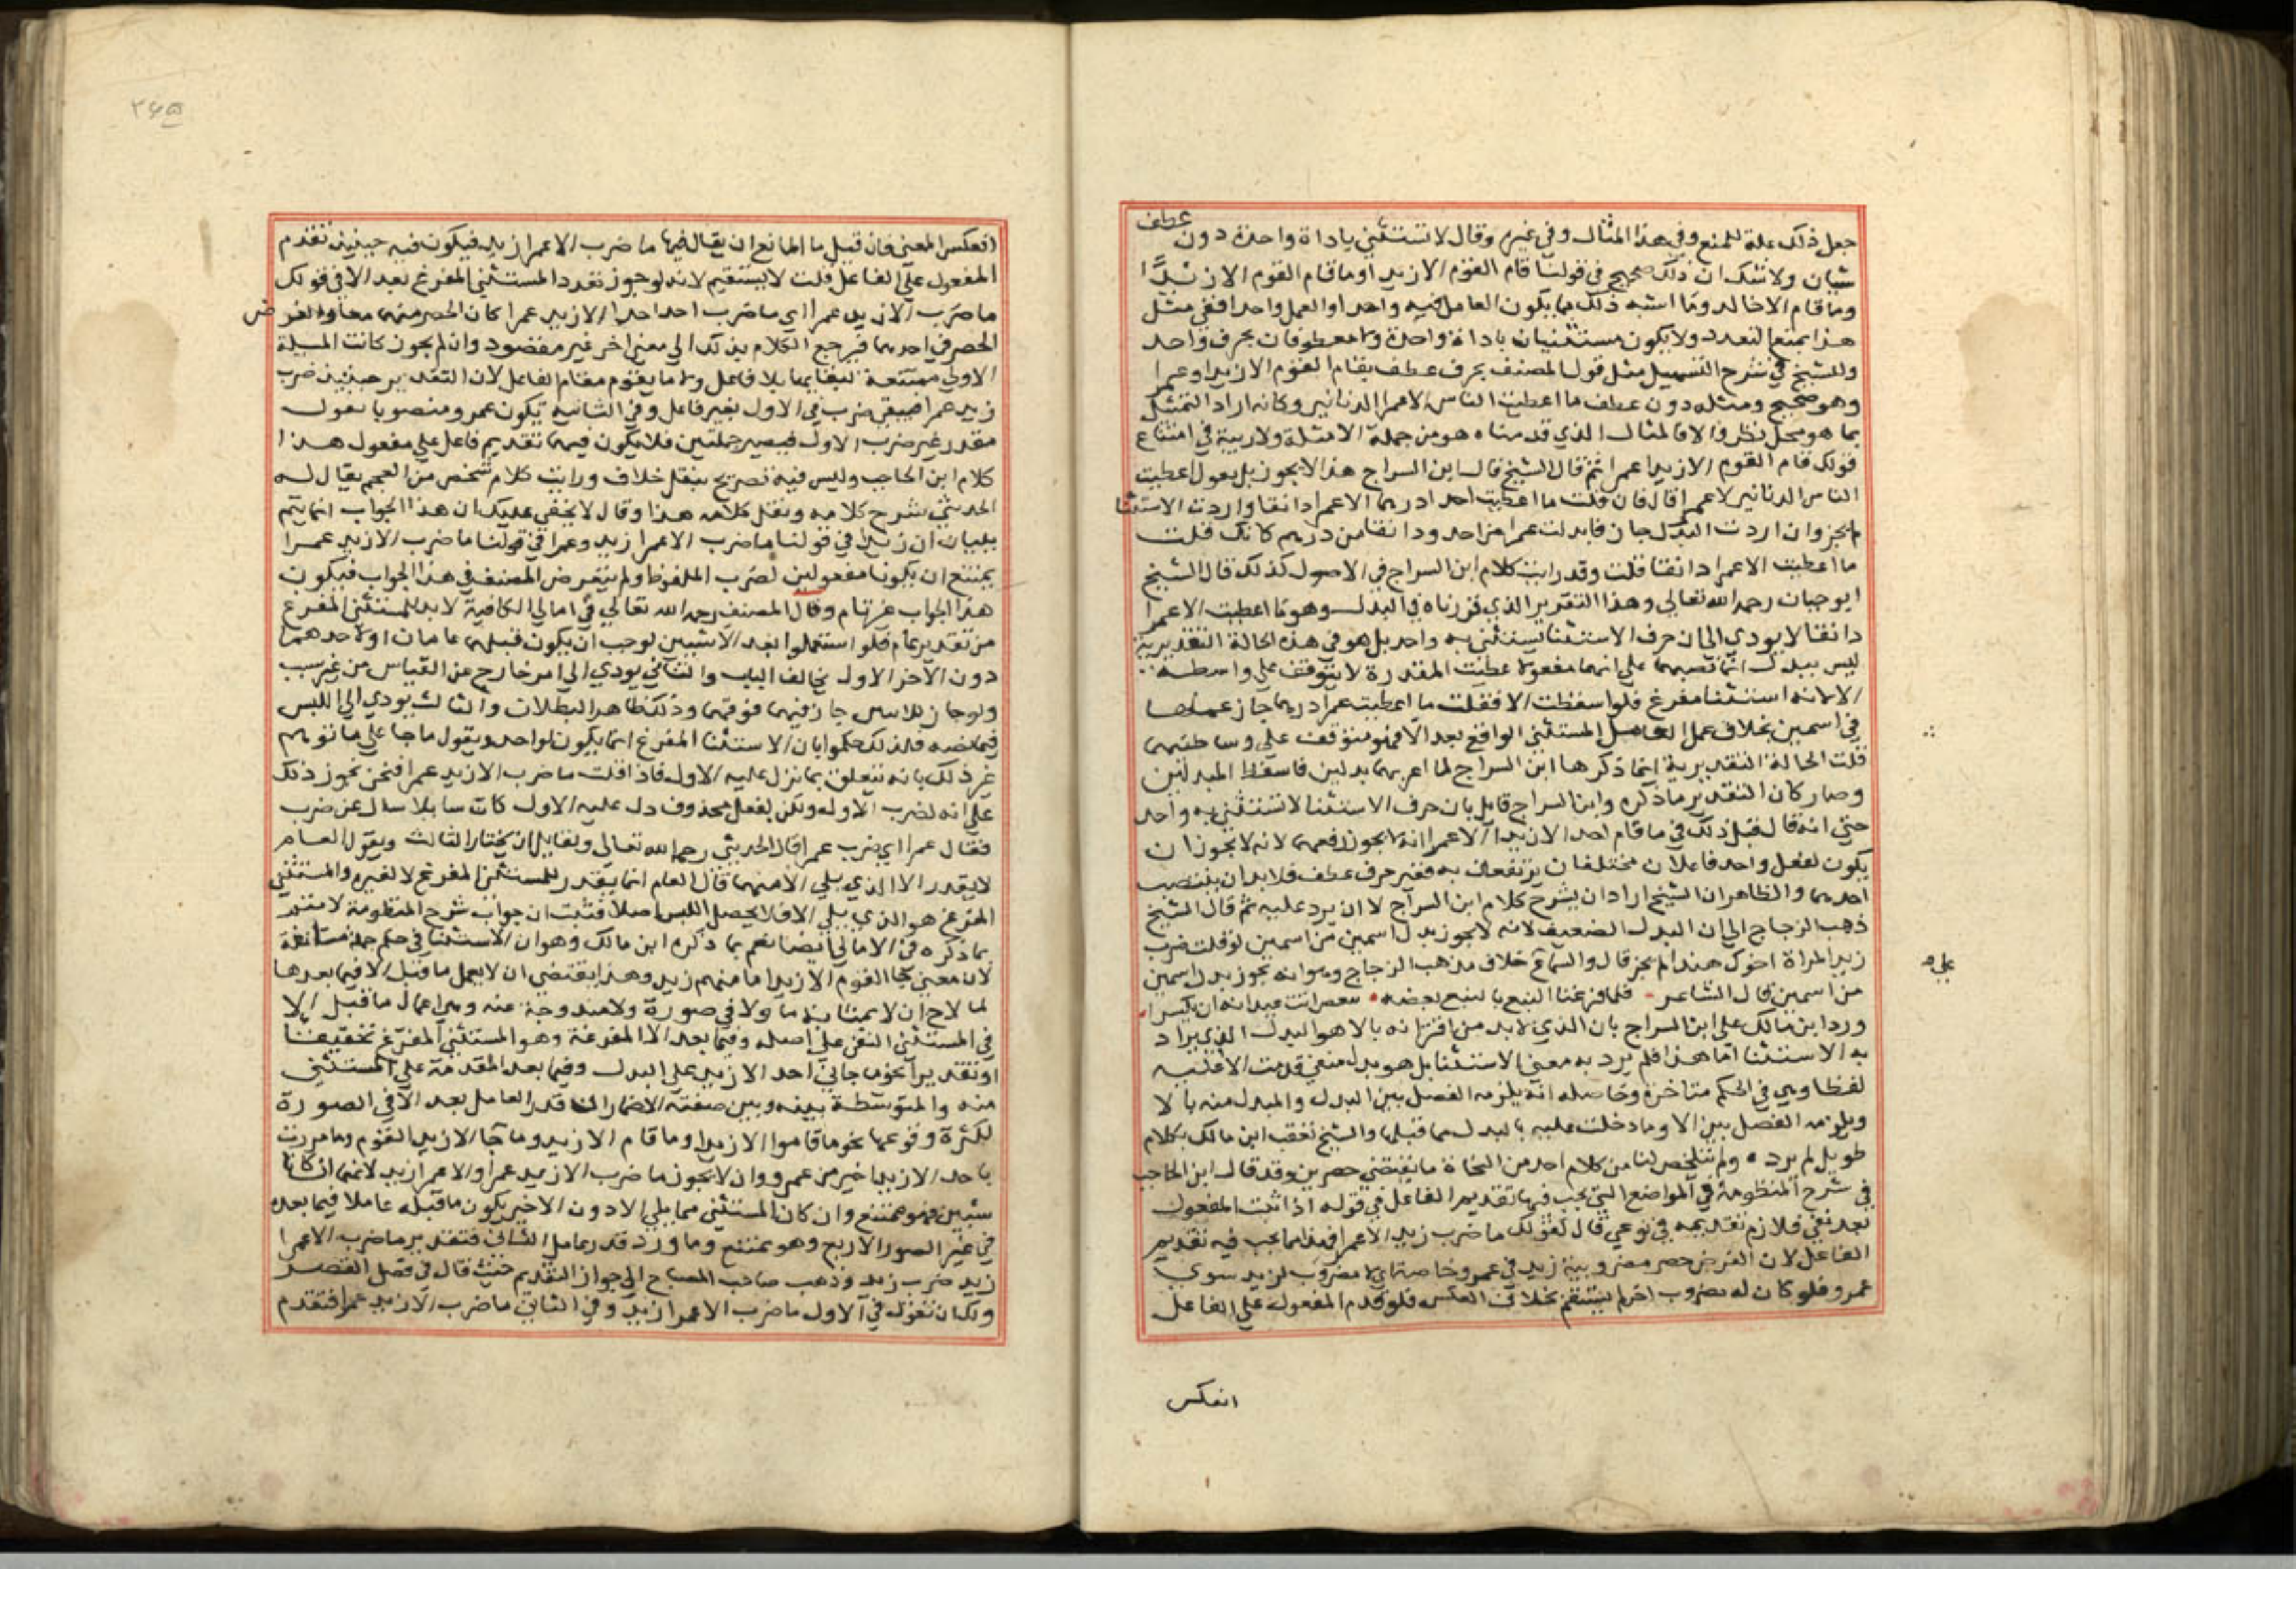 جعل ذلك علة للمنع وفي هذا المثال وفي غيره وقال لا تستثنى باداة واحدة دون عطف
شيان ولا شك ان ذلك صحيح في قولنا قام القوم الا زيد او ما قام القوم الا زيدا
وما قام الا خالد وما اشبه ذلك مما يكون العامل فيه واحدا والعمل واحدا ففي مثل
هذا يمتنع التعدد ولا يكون مستثنيان باداة واحدة ولا معطوفان بحرف واحد
وللشيخ في شرح التسهيل مثل قول المصنف بحرف عطف بقام القوم الا زيدا وعمرا
وهو صحيح ومثله دون عطف ما اعطيت الناس الا عمرا الدنانير وكانه اراد التمثيل
بما هو محل نظر والا فالمثال الذي قدمناه هو من جملة الامثلة ولا ريبة في امتناع
قولك قام القوم الا زيدا عمرا ثم قال الشيخ قال ابن السراج هذا لا يجوز بل يقول اعطيت
الناس الدنانير لا عمرا قال فان قلت ما اعطيت احدا درهما الا عمرا دانقا واردت الاستثنا
لم يجز وان اردت البدل جاز فابدلت عمرا من احد ودانقا من درهم كانك قلت
ما اعطيت الا عمرا دانقا قلت وقد رايت كلام ابن السراج في الاصول كذلك قال الشيخ
ابو حيان رحمه الله تعالى وهذا التقرير الذي قررناه في البدل وهو ما اعطيت الا عمرا
دانقا لا يودي الى ان حرف الاستثنا يستثنى به واحد بل هو في هذه الحالة التقديرية
ليس ببدل انما نصبهما على انهما مفعولا اعطيت المقدرة لا يتوقف على واسطة
الا لانه استثنا مفرغ فلو اسقطت الا فقلت ما اعطيت عمرا درهما جاز عملها
في اسمين بخلاف عمل العامل المستثنى الواقع بعد الا فهو متوقف على وساطتهما
قلت الحالة التقديرية انما ذكرها ابن السراج لما اعربهما بدلين فاسقط المبدلين
وصار كان التقدير ما ذكره وابن السراج قايل بان حرف الاستثنا لا تستثنى به واحد
حتى انه قال قبل ذلك في ما قام احد الا زيدا الا عمرا انه لا يجوز رفعهما لانه لا يجوز ان
يكون لفعل واحد فاعلان مختلفان يرتفعان به فغير حرف عطف فلا بد ان ينتصب
احدهما والظاهر ان الشيخ اراد ان يشرح كلام ابن السراج لا ان يرد عليه ثم قال الشيخ
ذهب الزجاج الى ان البدل الضعيف لانه لا يجوز بدل اسمين من اسمين لو قلت ضرب
زيد المراة اخوك هندا لم يجز قال والسماع خلاف مذهب الزجاج وهو انه يجوز بدل اسمين
من اسمين قال الشاعر فلما قرعنا النبع بالنبع بعضه ببعض ابت عيدانه ان تكسرا
ورد ابن مالك على ابن السراج بان الذي لا بد من اقترانه بالا هو البدل الذي يراد
به الاستثنا اما هذا فلم يرد به معنى الاستثنا بل هو بدل منفي قدمت الا عليه
لفظا وهي في الحكم متاخرة وحاصله انه يلزمه الفصل بين البدل والمبدل منه بالا
ويلزمه الفصل بين الا وما دخلت عليه بالبدل مما قبلها والشيخ تعقب ابن مالك بكلام
طويل لم يرده ولم تتلخص لنا من كلام احد من النحاة ما يقتضي حصرين وقد قال ابن الحاجب
في شرح المنظومة في المواضع التي يجب فيها تقديم الفاعل في قوله اذا ثبت المفعول
بعد نفي فلازم تقديمه في نوعي قال كقولك ما ضرب زيد الا عمرا فهذا مما يجب فيه تقديم
الفاعل لان الغرض حصر مضروبية زيد في عمرو خاصة اي لا مضروب لزيد سوى
عمرو فلو كان له مضروب اخر لم يستقم بخلاف العكس فلو قدم المفعول على الفاعل
انعكس
على
٢٤٥
انعكس المعنى فان قيل ما المانع ان يقال فيها ما ضرب الا عمرا زيد فيكون فيه حينئذ تقدم
المفعول على الفاعل قلت لا يستقيم لانه لو جوز تعدد المستثنى المفرغ بعد الا في قولك
ما ضرب الا زيد عمرا اي ما ضرب احد احدا الا زيد عمرا كان الحصر منهما معا والغرض
الحصر في احدهما فيرجع الكلام بذلك الى معنى اخر غير مقصود وان لم يجوز كانت المسئلة
الاولى ممتنعة لبقائها بلا فاعل ولا ما يقوم مقام الفاعل لان التقدير حينئذ ضرب
زيد عمرا فيبقى ضرب في الاول بغير فاعل وفي الثانية يكون عمرو منصوبا بفعل
مقدر غير ضرب الاول فيصير جملتين فلا يكون فيهما تقديم فاعل على مفعول هذا
كلام ابن الحاجب وليس فيه تصريح بنقل خلاف ورايت كلام شخص من العجم يقال له
الحديثي شرح كلامه ونقل كلامه هذا وقال لا يخفى عليك ان هذا الجواب انما يتم
ببيان ان زيدا في قولنا ما ضرب الا عمرا زيد وعمرا في قولنا ما ضرب الا زيد عمرا
يمتنع ان يكونا مفعولين لضرب الملفوظ ولم يتعرض المصنف في هذا الجواب فيكون
هذا الجواب غير تام وقال المصنف رحمه الله تعالى في امالي الكافية لا بد للمستثنى المفرغ
من تقدير عام فلو استعملوا بعد الا شيين لوجب ان يكون قبلهما عامان او لاحدهما
دون الآخر الاول يخالف الباب والثاني يودي الى امر خارج عن القياس من غير سبب
ولو جاز ... جاز فيهما فوقهما وذلك ظاهر البطلان والثالث يودي الى اللبس
فيما قصد فلذلك حكموا بان الاستثنا المفرغ انما يكون لواحد ويقول ما جا على ما توهم
غير ذلك بانه يتعلق بما نزل عليه الاول فاذا قلت ما ضرب الا زيد عمرا فنحن نجوز ذلك
على انه لضرب الاول ولكن بفعل محذوف دل عليه الاول كان سايلا سال عن ضرب
فقال عمرا اي ضرب عمرا قال الحديثي رحمه الله تعالى ولقايل ان يختار الثالث ويقول العام
لا يقدر الا الذي يلي الا منهما فان العام انما يقدر للمستثنى المفرغ لا لغيره والمستثنى
المفرغ هو الذي يلي الا فلا يحصل اللبس اصلا فثبت ان جواب شرح المنظومة لا يتم
بما ذكره في الامالي ايضا نعم بما ذكره ابن مالك وهو ان الاستثنا في حكم جملة مستانفة
لان معنى جا القوم الا زيدا ما منهم زيد وهذا يقتضي ان لا يعمل ما قبل الا فيما بعدها
لما لاح ان الا بمثابة ما ولا في صورة ولا مندوحة عنه وهي اعمال ما قبل الا
في المستثنى المنفي على اصله وفيما بعد الا المفرغة وهو المستثنى المفرغ تحقيقا
او تقديرا نحو ما جاني احد الا زيد على البدل وفيما بعد المقدمة على المستثنى
منه والمتوسطة بينه وبين صفته الا ... قدر العامل بعد الا في الصورة
لكثرة وقوعها نحو ما قاموا الا زيدا وما قام الا زيد وما جا الا زيد القوم وما مررت
باحد الا زيدا خير من عمرو وان لا يجوز ما ضرب الا زيد عمرا ولا الا عمرا زيد لانهما ان كانا
شيئين فهو ممتنع وان كان المستثنى مما يلي الا دون الاخير يكون ما قبله عاملا فيما بعده
في غير الصور الاربع وهو ممتنع وما ورد قدر عامل الثاني فتقدير ما ضرب الا عمرا
زيد ضرب زيد وذهب صاحب المصباح الى جواز التقديم حيث قال في فصل القصر
ولك ان تقول في الاول ما ضرب الا عمرا زيد وفي الثاني ما ضرب الا زيد عمرا فتقدم